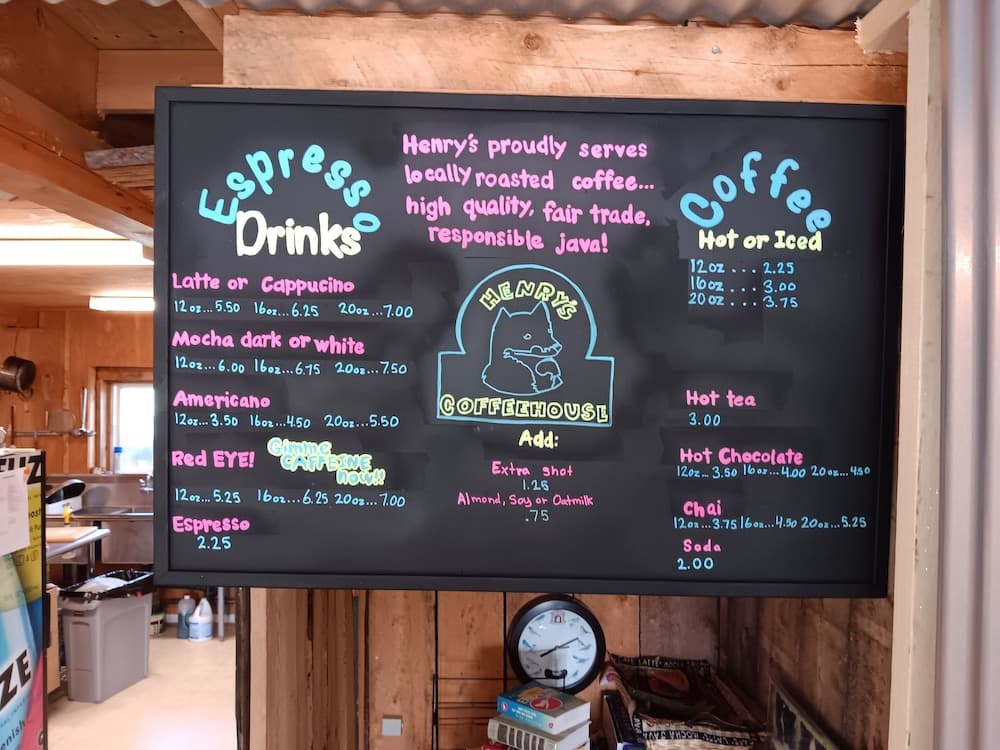 Espresso
Drinks
Latte or Cappucino
12oz...5.50 16oz...6.25 20oz...7.00
Mocha dark or white
12oz...6.00 16oz...6.75 20oz...7.50
Americano
12oz...3.50 16oz...4.50 20oz...5.50
Red EYE!
Gimme
CAFFEINE
now!!
12oz...5.25 16oz...6.25 20oz...7.00
Espresso
2.25
Henry's proudly serves
locally roasted coffee...
high quality, fair trade,
responsible java!
HENRY'S
COFFEEHOUSE
Add:
Extra shot
1.25
Almond, Soy or Oatmilk
.75
Coffee
Hot or Iced
12oz...2.25
16oz...3.00
20oz...3.75
Hot tea
3.00
Hot Chocolate
12oz...3.50 16oz...4.00 20oz...4.50
Chai
12oz...3.75 16oz...4.50 20oz...5.25
Soda
2.00